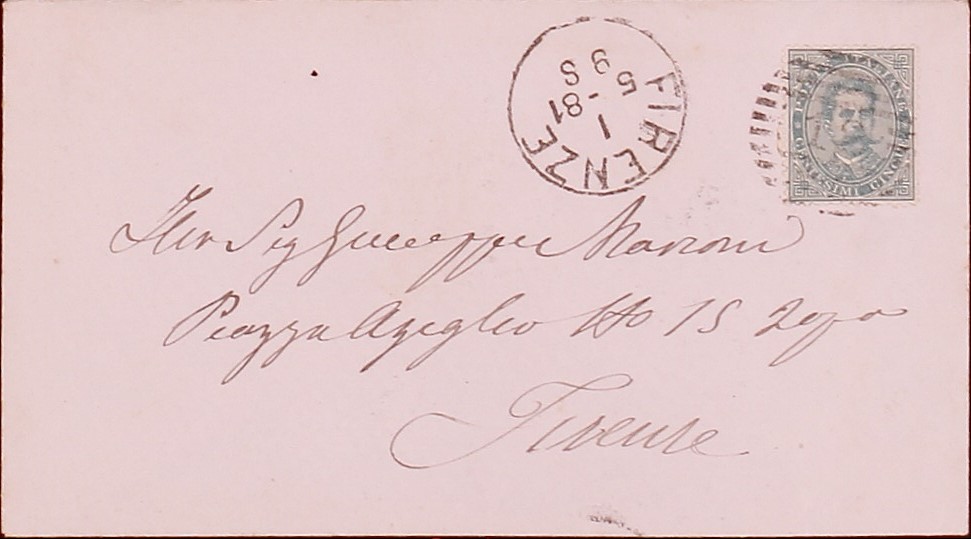 FIRENZE
5
9 S
1-81
POSTE ITALIANE
CENTESIMI CINQUE
Ill Sig Giuseppe
Piazza Azeglio No 15 2o po
Firenze